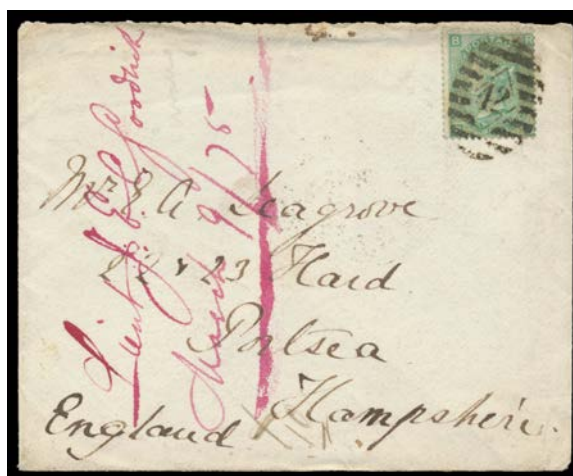 Mr E A Seagrove
22 & 23 Hard
Portsea
Hampshire.
England
Lieut J. E. Goodrich
March 9/75
B
12